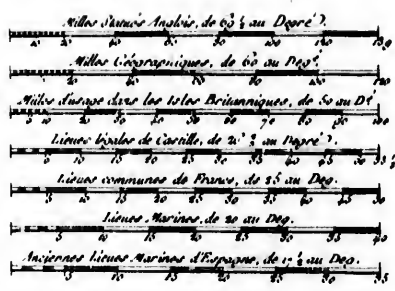 Milles Statués Anglois, de 69 ½ au Degré.
10 20 40 60 80 100 120
Milles Géographiques, de 60 au Degé.
20 40 120
Milles d'usage dans les Isles Britanniques, de 50 au Dé
5 10 20 30 40 50 60 70 80 90 100
Lieues légales de Castille, de au Degré.
5 10 15 20 25 30 35 40 45 50
Lieues communes de France, de 25 au Deg.
5 10 15 20 25 30 35 40 45 50
Lieues Marines, de 20 au Deg.
5 10 15 20 25 30 35 40
Anciennes Lieues Marines d'Espagne, de 17 ½ au Deg.
5 10 15 20 25 30 35